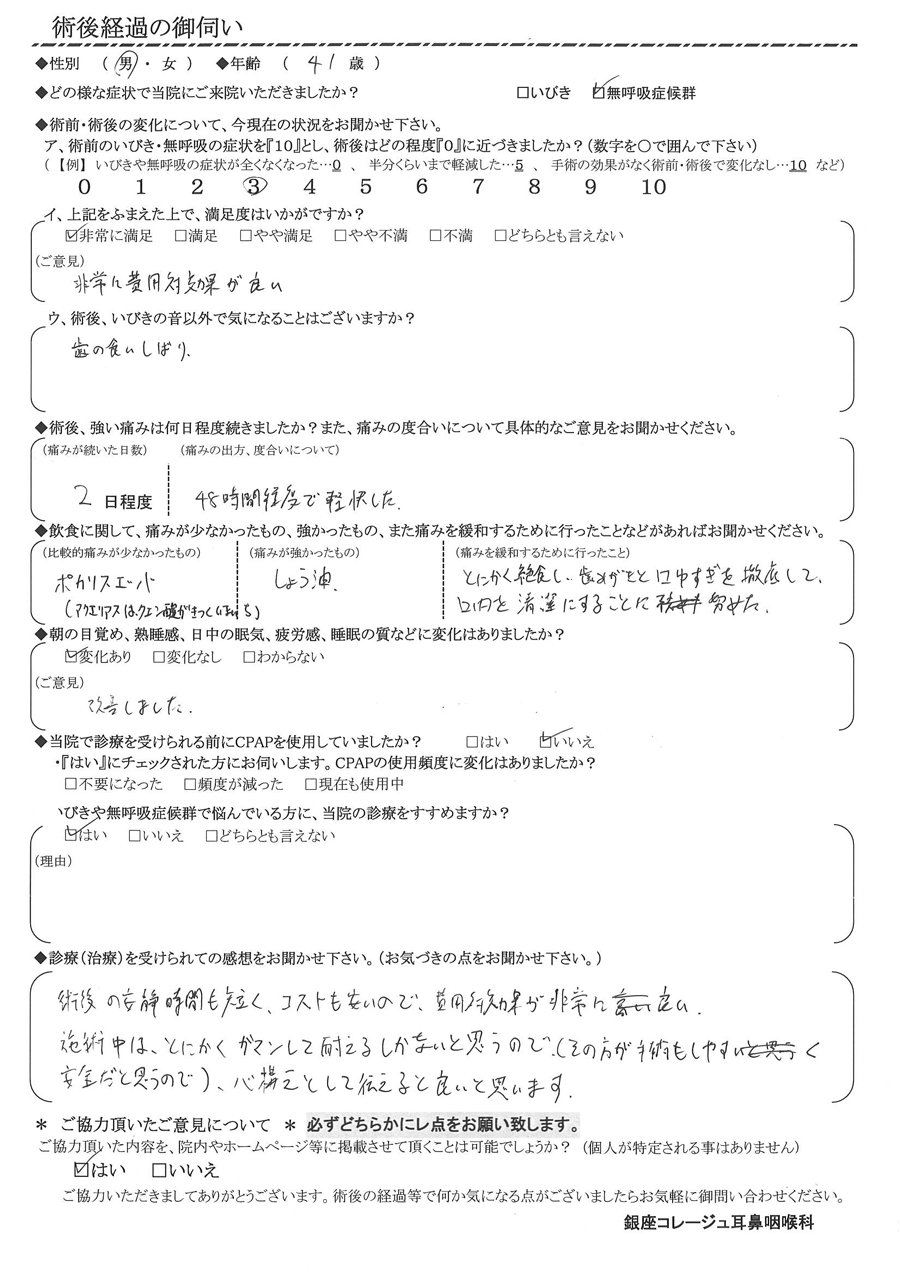 術後経過の御伺い
◆性別 （ 男 ・ 女 ） ◆年齢 （ 41 歳 ）
◆どの様な症状で当院にご来院いただきましたか？ □いびき ☑無呼吸症候群
◆術前・術後の変化について、今現在の状況をお聞かせ下さい。
ア、術前のいびき・無呼吸の症状を『10』とし、術後はどの程度『0』に近づきましたか？（数字を〇で囲んで下さい）
（ 【例】 いびきや無呼吸の症状が全くなくなった…0 、 半分くらいまで軽減した…5 、 手術の効果がなく術前・術後で変化なし…10 など）
0 1 2 3 4 5 6 7 8 9 10
イ、上記をふまえた上で、満足度はいかがですか？
☑非常に満足 □満足 □やや満足 □やや不満 □不満 □どちらとも言えない
（ご意見）
非常に費用対効果が良い
ウ、術後、いびきの音以外で気になることはございますか？
歯の食いしばり、
◆術後、強い痛みは何日程度続きましたか？また、痛みの度合いについて具体的なご意見をお聞かせください。
（痛みが続いた日数） （痛みの出方、度合いについて）
2 日程度 48時間程度で軽快した.
◆飲食に関して、痛みが少なかったもの、強かったもの、また痛みを緩和するために行ったことなどがあればお聞かせください。
（比較的痛みが少なかったもの） （痛みが強かったもの） （痛みを緩和するために行ったこと）
ポカリスエット しょう油. とにかく絶食し、歯みがきと口ゆすぎを徹底して、
（アクエリアスはクエン酸がきつく 口内を清潔にすることに 努めた.
◆朝の目覚め、熟睡感、日中の眠気、疲労感、睡眠の質などに変化はありましたか？
☑変化あり □変化なし □わからない
（ご意見）
改善しました.
◆当院で診療を受けられる前にCPAPを使用していましたか？ □はい ☑いいえ
・『はい』にチェックされた方にお伺いします。CPAPの使用頻度に変化はありましたか？
□不要になった □頻度が減った □現在も使用中
いびきや無呼吸症候群で悩んでいる方に、当院の診療をすすめますか？
☑はい □いいえ □どちらとも言えない
（理由）
◆診療（治療）を受けられての感想をお聞かせ下さい。（お気づきの点をお聞かせ下さい。）
術後の安静時間も短く、コストも安いので、費用対効果が非常に良い.
施術中は、とにかくガマンして耐えるしかないと思うので、（その方が手術もしやすく
安全だと思うので）、心構えとして伝えると良いと思います.
＊ ご協力頂いたご意見について ＊ 必ずどちらかにレ点をお願い致します。
ご協力頂いた内容を、院内やホームページ等に掲載させて頂くことは可能でしょうか？ （個人が特定される事はありません）
☑はい □いいえ
ご協力いただきましてありがとうございます。術後の経過等で何か気になる点がございましたらお気軽に御問い合わせください。
銀座コレージュ耳鼻咽喉科